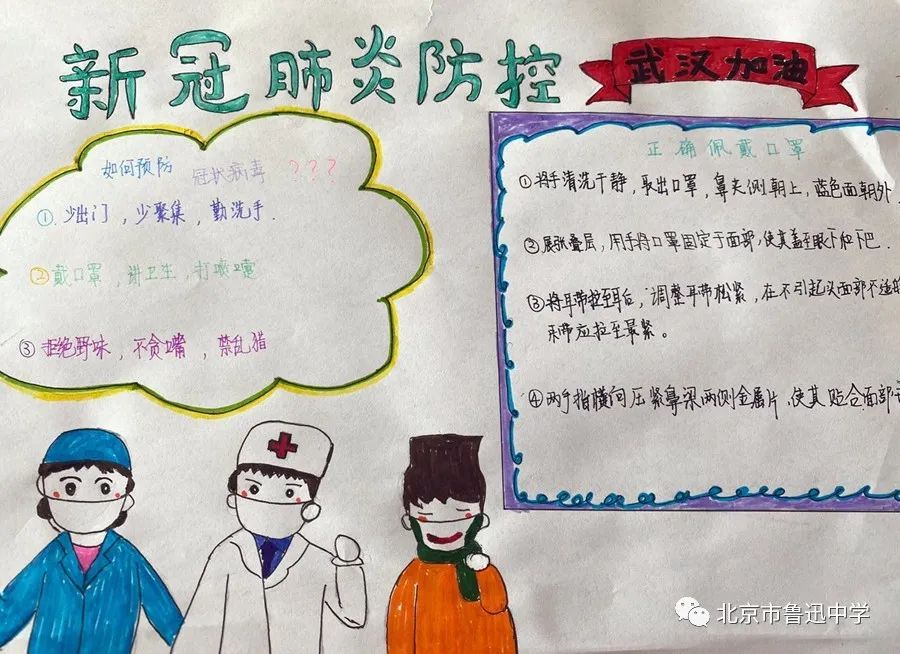 新冠肺炎防控
武汉加油
如何预防 冠状病毒 ???
① 少出门,少聚集,勤洗手.
②戴口罩,讲卫生,打喷嚏
③ 拒绝野味,不贪嘴,禁乱猎
正确佩戴口罩
①将手清洗干静,取出口罩,鼻夹侧朝上,蓝色面朝外.
②展张叠层,用手将口罩固定于面部,使其盖至眼下和下巴.
③将耳带拉至耳后,调整耳带松紧,在不引起头面部不适的
带应拉至最紧。
④两手指横向压紧鼻梁两侧金属片,使其贴合面部
北京市鲁迅中学